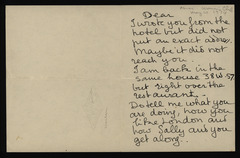 Dear
I wrote you from the
hotel but did not
put an exact address.
Maybe it did not
reach you.
I am back in the
same house 38 W 57
but right over the
restaurant.
Do tell me what you
are doing, how you
like London and
how Sally and you
get along.